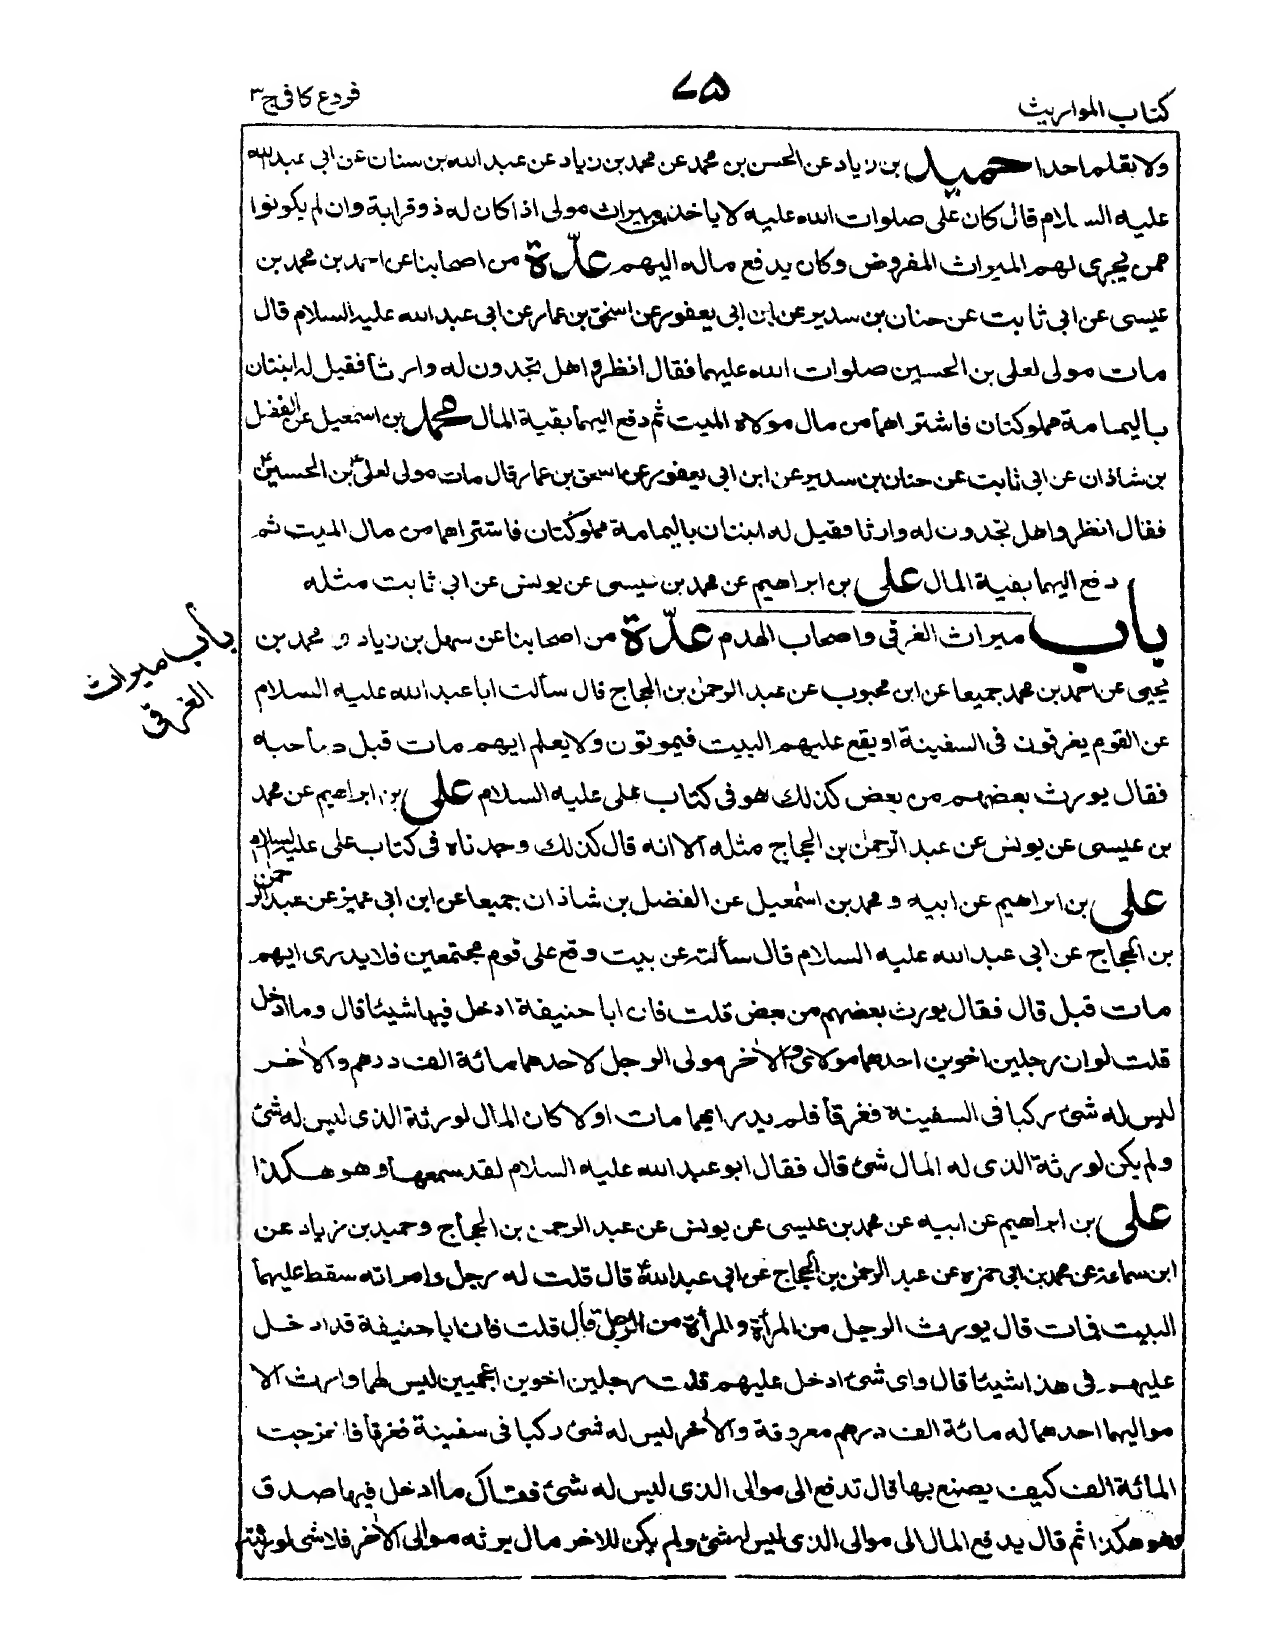 كتاب المواريث
٧٥
فروع كافي ج٣
ولا بقلما حدا حميد بن زياد عن الحسن بن محمد عن محمد بن زياد عن عبد الله بن سنان عن ابى عبد الله
عليه السلام قال كان على صلوات الله عليه لا ياخذ ميراث مولى اذا كان له ذو قرابة وان لم يكونوا
ممن يجرى لهم الميراث المفروض وكان يدفع ماله اليهم عدّة من اصحابنا عن احمد بن محمد بن
عيسى عن ابى ثابت عن حنان بن سدير عن ابن ابى يعفور عن اسحق بن عمار عن ابى عبد الله عليه السلام قال
مات مولى لعلى بن الحسين صلوات الله عليهما فقال انظروا هل تجدون له وارثا فقيل له ابنتان
باليمامة مملوكتان فاشتراهما من مال مولاه الميت ثم دفع اليهما بقية المال محمد بن اسمعيل عن الفضل
بن شاذان عن ابى ثابت عن حنان بن سدير عن ابن ابى يعفور عن اسحق بن عمار قال مات مولى لعلىّ بن الحسينؑ
فقال انظروا هل تجدون له وارثا فقيل له ابنتان باليمامة مملوكتان فاشتراهما من مال الميت ثم
دفع اليهما بقية المال على بن ابراهيم عن محمد بن عيسى عن يونس عن ابى ثابت مثله
باب ميراث الغرقى واصحاب الهدم عدّة من اصحابنا عن سهل بن زياد و محمد بن
باب ميراث
الغرقى
يحيى عن احمد بن محمد جميعا عن ابن محبوب عن عبد الرحمٰن بن الحجاج قال سألت ابا عبد الله عليه السلام
عن القوم يغرقون فى السفينة او يقع عليهم البيت فيموتون ولا يعلم ايهم مات قبل صاحبه
فقال يورث بعضهم من بعض كذلك هو فى كتاب على عليه السلام على بن ابراهيم عن محمد
بن عيسى عن يونس عن عبد الرحمٰن بن الحجاج مثله الا انه قال كذلك وجدناه فى كتاب على عليه السلام
على بن ابراهيم عن ابيه و محمد بن اسمٰعيل عن الفضل بن شاذان جميعا عن ابن ابى عمير عن عبد الرحمن
بن الحجاج عن ابى عبد الله عليه السلام قال سألته عن بيت وقع على قوم مجتمعين فلا يدرى ايهم
مات قبل قال فقال يورث بعضهم من بعض قلت فان ابا حنيفة ادخل فيها شيئا قال وما ادخل
قلت لو ان رجلين اخوين احدهما مولاى والاٰخر مولى الرجل لاحدهما مائة الف درهم والاٰخر
ليس له شئ ركبا فى السفينة فغرقا فلم يدر ايهما مات اولا كان المال لورثة الذى ليس له شئ
ولم يكن لورثة الذى له المال شئ قال فقال ابو عبد الله عليه السلام لقد سمعها وهو هكذا
على بن ابراهيم عن ابيه عن محمد بن عيسى عن يونس عن عبد الرحمن بن الحجاج وحميد بن زياد عن
ابن سماعة عن محمد بن ابى حمزه عن عبد الرحمٰن بن الحجاج عن ابى عبد اللهؑ قال قلت له رجل وامراته سقط عليهما
البيت فمات قال يورث الرجل من المرأة والمرأة من الرجل قال قلت فان ابا حنيفة قد ادخل
عليهم فى هذا شيئا قال واى شئ ادخل عليهم قلت رجلين اخوين اعجميين ليس لهما وارث الا
مواليهما احدهما له مائة الف درهم معروفة والاٰخر ليس له شئ ركبا فى سفينة فغرقا فاخرجت
المائة الف كيف يصنع بها قال تدفع الى موالى الذى ليس له شئ فقال ما ادخل فيها صدق
وهو هكذا ثم قال يدفع المال الى موالى الذى ليس له شئ ولم يكن للاخر مال يرثه موالى الاٰخر فلا شى لورثته